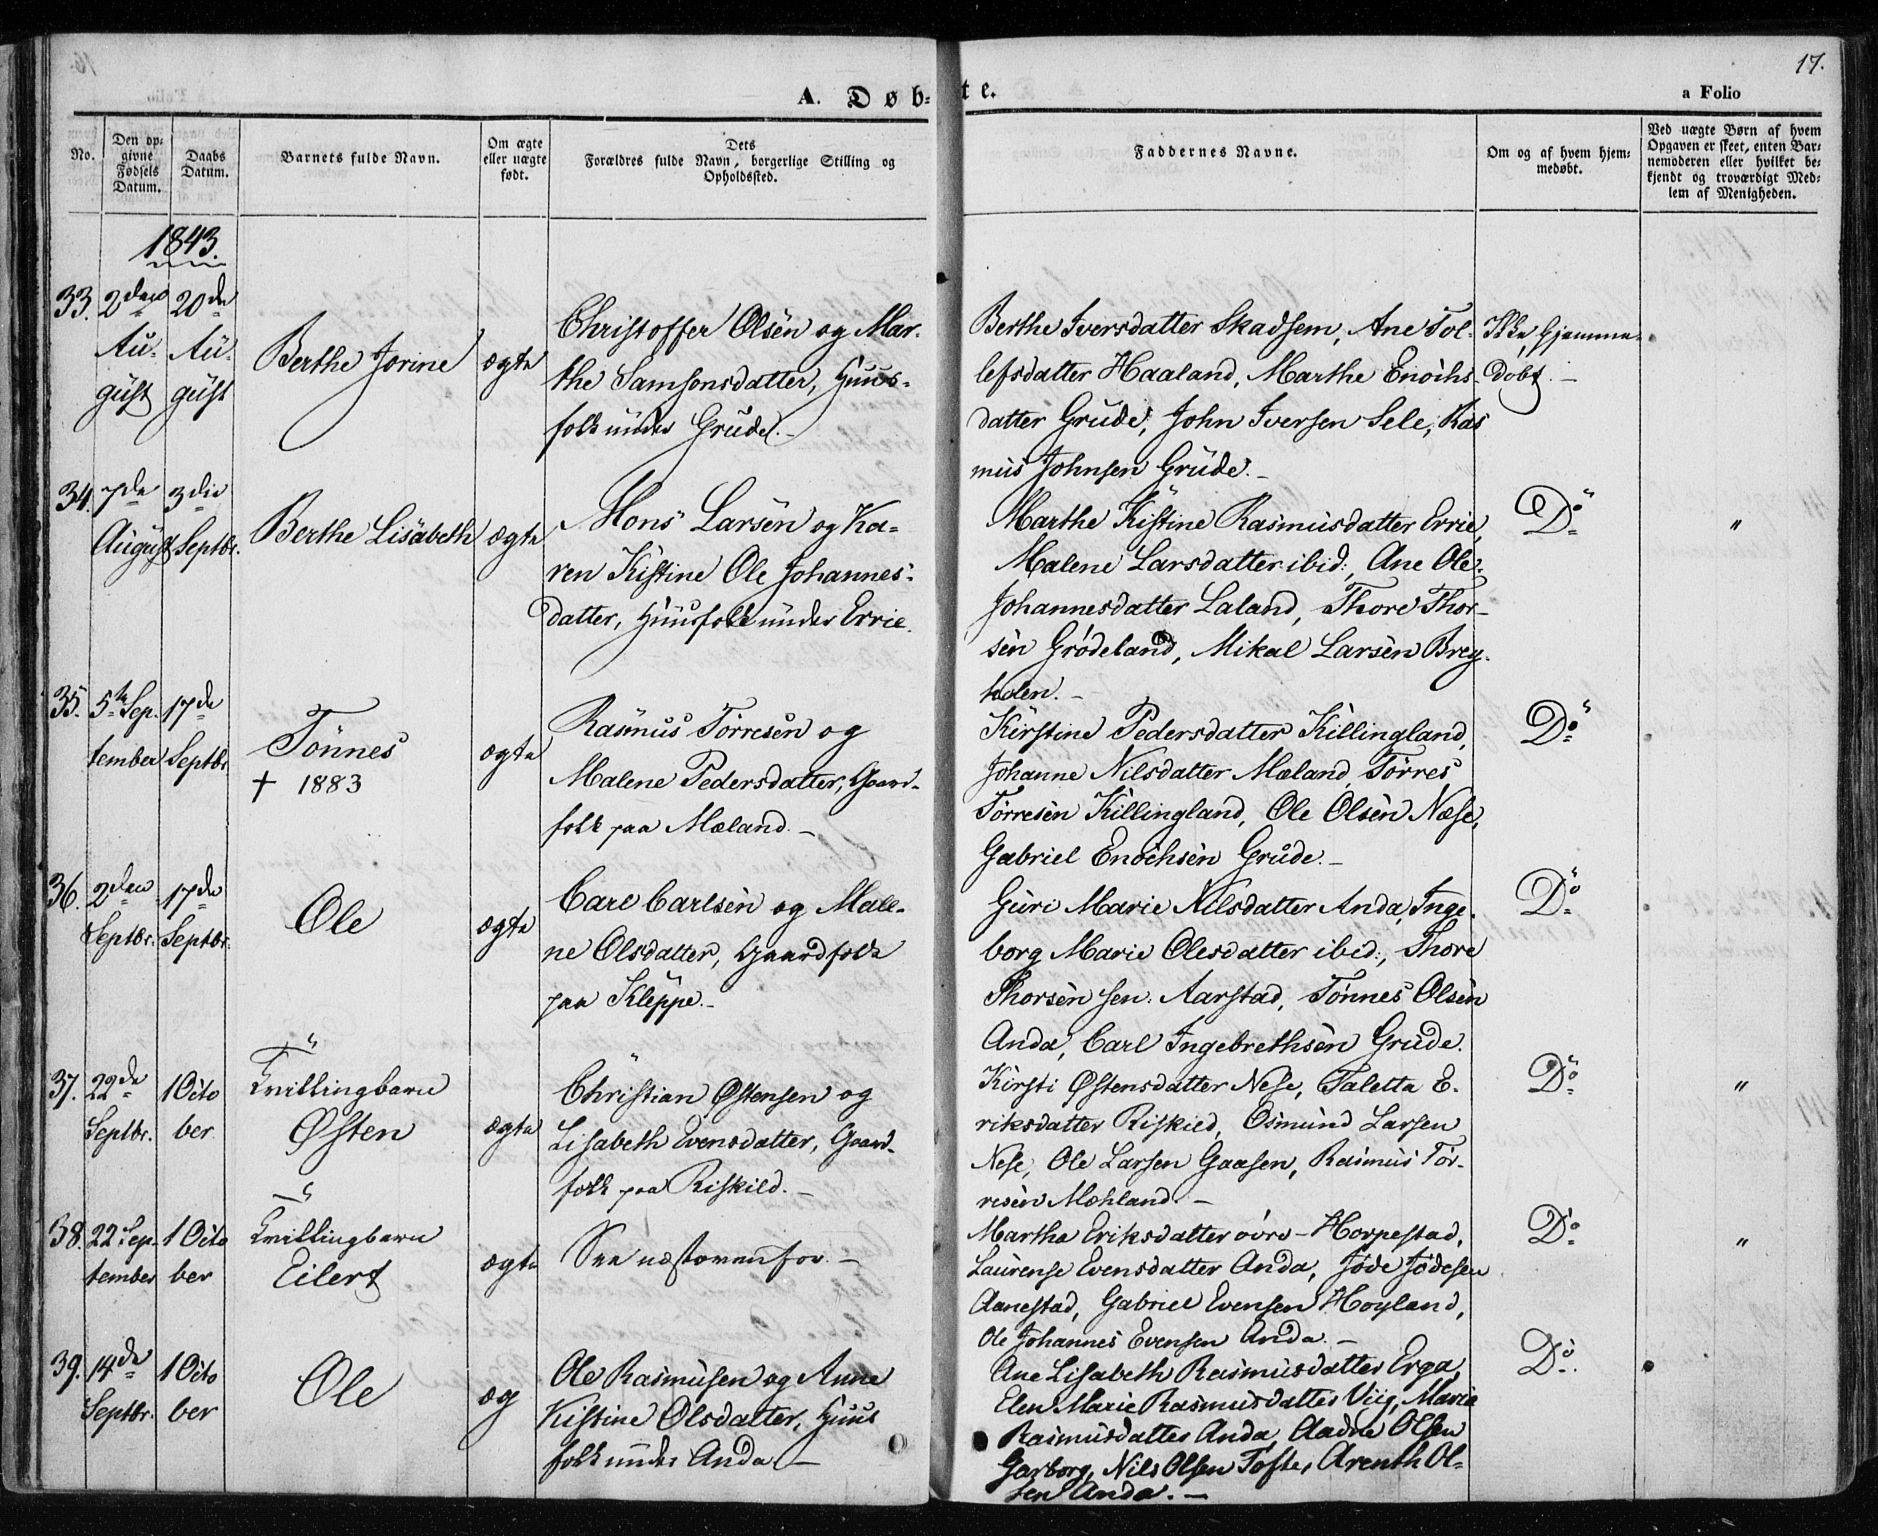 17.
A. Døb-
te.
a Folio
No.
Den op-
givne
Fødsels
Datum.
Daabs
Datum.
Barnets fulde Navn.
Om ægte
eller uægte
født.
Dets
Forældres fulde Navn, borgerlige Stilling og
Opholdssted.
Faddernes Navne.
Om og af hvem hjem-
medøbt.
Ved uægte Børn af hvem
Opgaven er skeet, enten Bar-
nemoderen eller hvilket be-
kjendt og troværdigt Med-
lem af Menigheden.
1843.
33.
2den
Au-
gust
20de
Au-
gust
Berthe Jorine
ægte
Christoffer Olsen og Mar-
the Samsonsdatter, Huus-
folk under Grude.-
Berthe Iversdatter Skadsem, Ane Tol-
lefsdatter Haaland, Marthe Enochs-
datter Grude, John Iversen Sele, Ras
mus Johnsen Grude.-
Ikke Hjemme-
døbt.-
34.
7de
August
3die
Septbr.
Berthe Lisabeth
ægte
Mons Larsen og Ka-
ren Kistine Ole Johannes-
datter, Huusfolk under Errie.
Marthe Kistine Rasmusdatter Errie,
Malene Larsdatter ibid:, Ane Ole-
Johannesdatter Laland, Thore Thor-
sen Grødeland, Mikal Larsen Brey-
holen.-
Do
"
35.
5te Sep-
tember
17de
Septbr.
Tönnes
† 1883
ægte
Rasmus Tørresen og
Malene Pedersdatter, Gaard-
folk paa Mæland.-
Kirstine Pedersdatter Killingland,
Johanne Nilsdatter Mæland, Tørres
Tørresen Killingland, Ole Olsen Næse,
Gabriel Enochsen Grude.-
Do
36.
2den
Septbr.
17de
Septbr.
Ole
ægte
Carl Carlsen og Male-
ne Olsdatter, Gaardfolk
paa Kleppe.-
Guri Marie Nilsdatter Anda, Inge-
borg Marie Olesdatter ibid:, Thore
Thorsen sen. Aarstad, Tönnes Olsen
Anda, Carl Ingebrethsen Grude.
Do
37.
22de
Septbr.
1 Octo
ber
Tvillingbarn
Østen
ægte
Christian Østensen og
Lisabeth Evensdatter, Gaard-
folk paa Riskild.-
Kirsti Østensdatter Nese, Taletta E-
riksdatter Riskild, Osmund Larsen
Nese, Ole Larsen Gaasen, Rasmus Tør-
resen Mæhland.-
Do
"
38.
22 Sep-
tember
1 Octo
ber
Tvillingbarn
Eilert
ægte
See næstovenfor.-
Martha Eriksdatter øvre-Horpestad,
Laurense Evensdatter Anda, Jøde Jødesen
Aanestad, Gabriel Evensen Hoyland,
Ole Johannes Evensen Anda.-
Do
"
39.
14de
Septbr.
1 Octo
ber
Ole
æg
Ole Rasmusen og Anne
Kistine Olsdatter, Huus
folk under Anda.-
Ane Lisabeth Rasmusdatter Erga,
Elen Marie Rasmusdatter Viig, Marie
Rasmusdatter Anda, Aadne Olsen
Garborg, Nils Olsen Tofte, Arenth Ol-
sen Anda.-
Do.